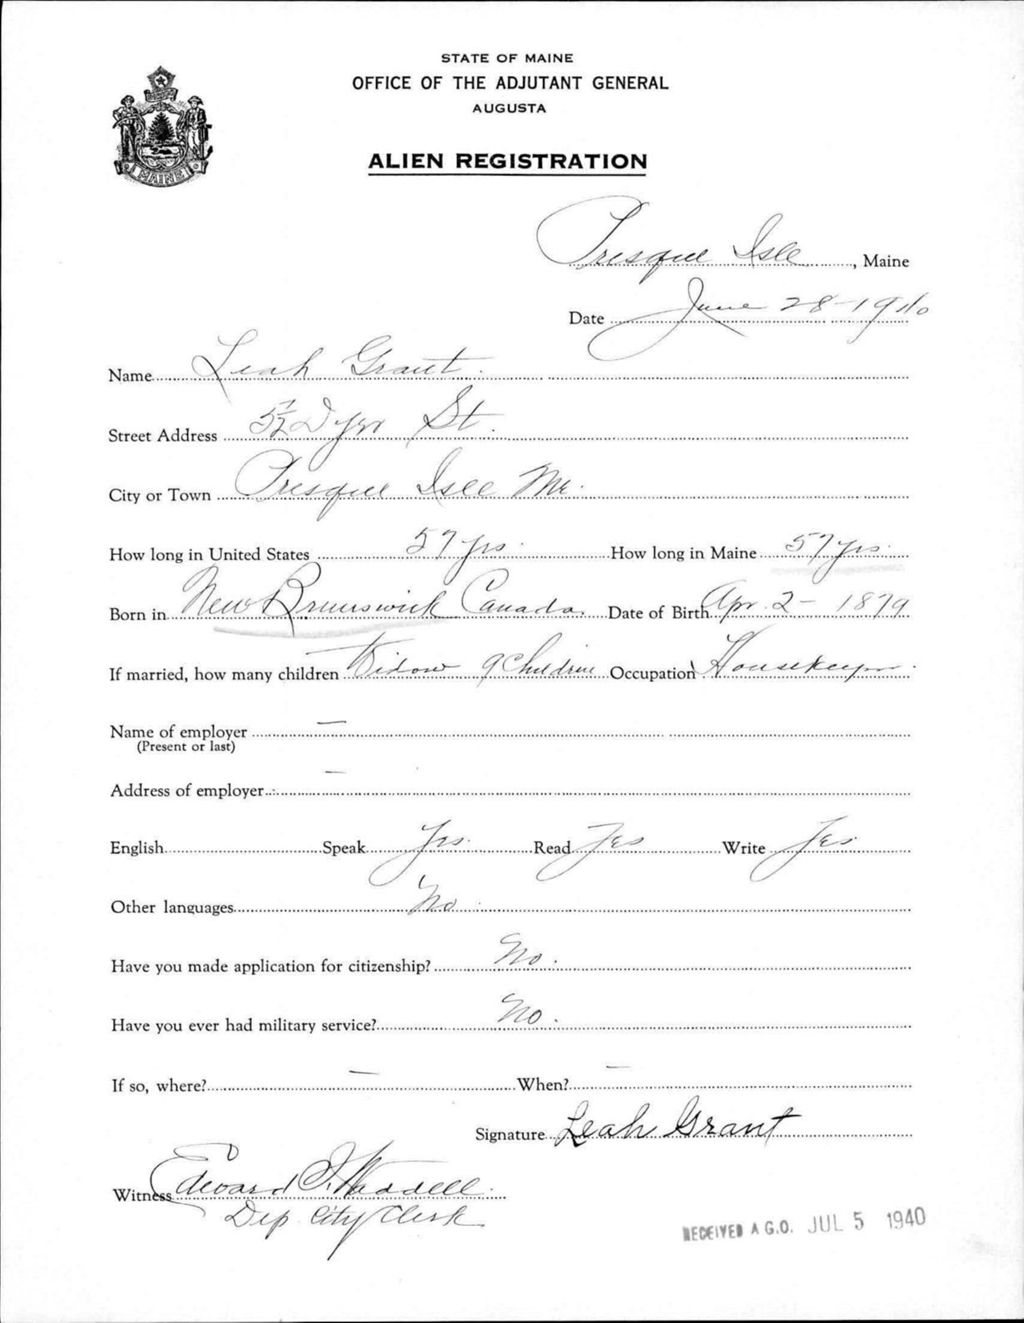 STATE OF MAINE
OFFICE OF THE ADJUTANT GENERAL
AUGUSTA
ALIEN REGISTRATION
MAINE
Presque Isle, Maine
Date June 28-1940
Name Leah Grant.
Street Address St.
City or Town Presque Isle Me.
How long in United States 57 yrs. How long in Maine 57 yrs.
Born in New Brunswick Canada. Date of Birth Apr. 2- 1879
If married, how many children Widow 9 Children Occupation Housekeeper.
Name of employer —
(Present or last)
Address of employer —
English Speak Yes. Read Yes Write Yes
Other languages No.
Have you made application for citizenship? No.
Have you ever had military service? No.
If so, where? — When? —
Signature Leah Grant
Witness Edward Waddell.
Dep City Clerk
RECEIVED A.G.O. JUL 5 1940